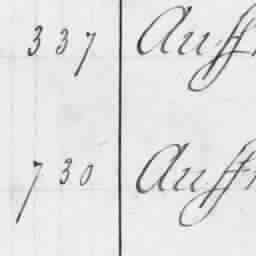 337 Auff
730 Auff